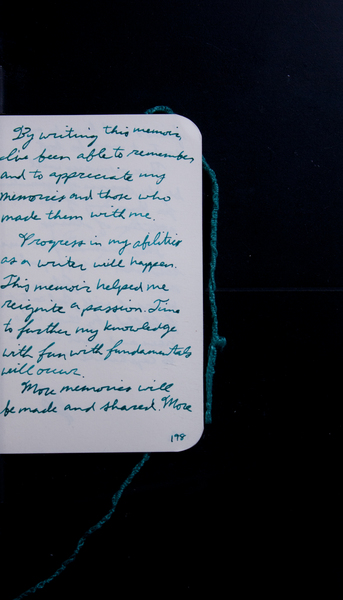 By writing this memoir,
I've been able to remember
and to appreciate my
memories and those who
made them with me.
Progress in my abilities
as a writer will happen.
This memoir helped me
reignite a passion. Time
to further my knowledge
with fun with fundamentals
will occur.
More memories will
be made and shared. More
198